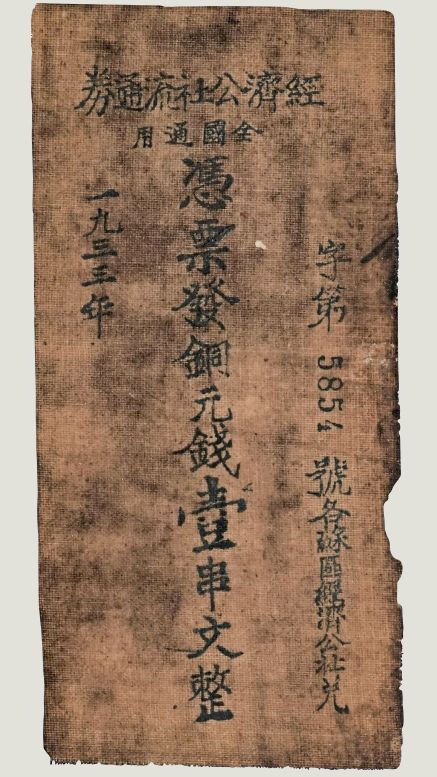 經濟公社流通劵
全國通用
字第 5854 號各蘇區經濟公社兑
憑票發銅元錢壹串文整
一九三三年